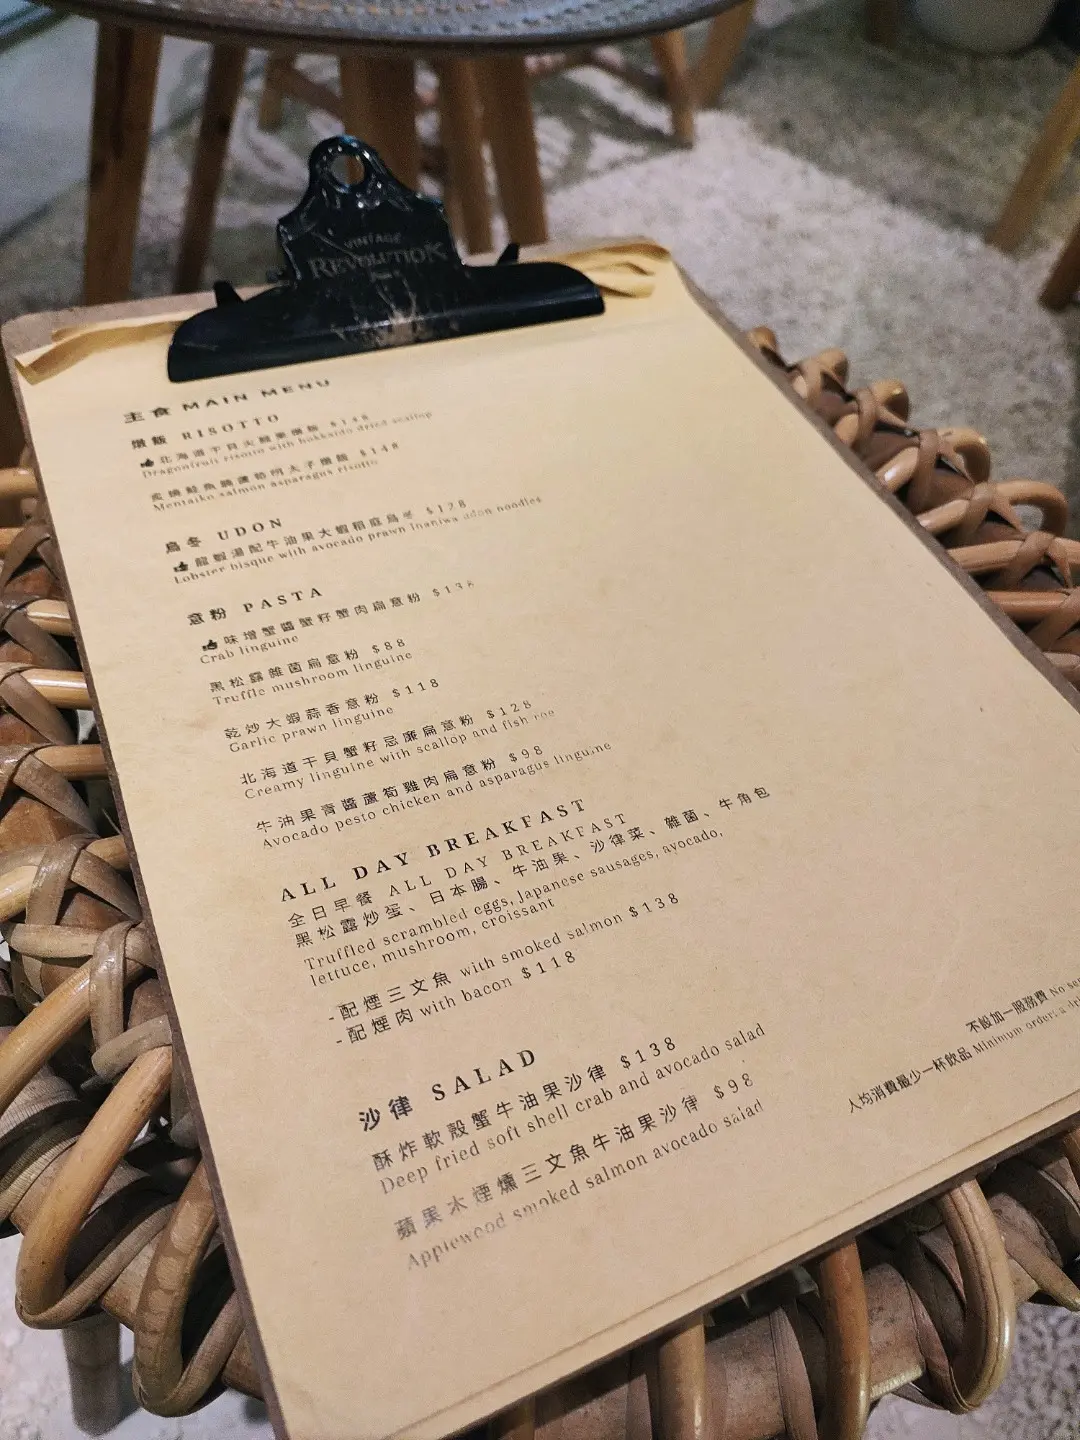 VINTAGE
REVOLUTION
主食 MAIN MENU
燉飯 RISOTTO
北海道干貝火龍果燉飯 $148
Dragonfruit risotto with hokkaido dried scallop
炙燒鮭魚腩蘆筍明太子燉飯 $148
Mentaiko salmon asparagus risotto
烏冬 UDON
龍蝦湯配牛油果大蝦稻庭烏冬 $128
Lobster bisque with avocado prawn Inaniwa udon noodles
意粉 PASTA
味增蟹醬蟹籽蟹肉扁意粉 $138
Crab linguine
黑松露雜菌扁意粉 $88
Truffle mushroom linguine
乾炒大蝦蒜香意粉 $118
Garlic prawn linguine
北海道干貝蟹籽忌廉扁意粉 $128
Creamy linguine with scallop and fish roe
牛油果青醬蘆筍雞肉扁意粉 $98
Avocado pesto chicken and asparagus linguine
ALL DAY BREAKFAST
全日早餐 ALL DAY BREAKFAST
黑松露炒蛋、日本腸、牛油果、沙律菜、雜菌、牛角包
Truffled scrambled eggs, Japanese sausages, avocado,
lettuce, mushroom, croissant
-配煙三文魚 with smoked salmon $138
-配煙肉 with bacon $118
沙律 SALAD
酥炸軟殼蟹牛油果沙律 $138
Deep fried soft shell crab and avocado salad
蘋果木煙燻三文魚牛油果沙律 $98
Applewood smoked salmon avocado salad
不設加一服務費 No
人均消費最少一杯飲品 Minimum order: a